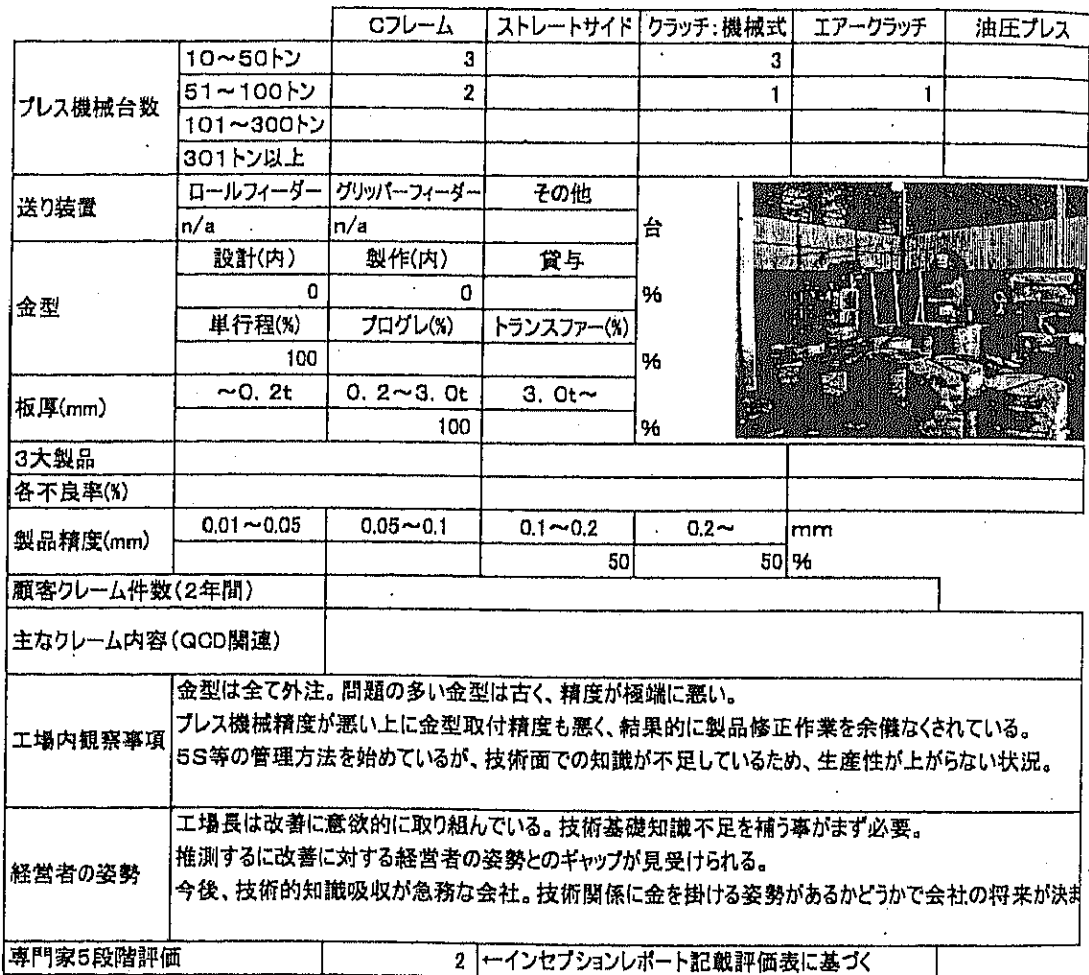 Cフレーム ストレートサイド クラッチ:機械式 エアークラッチ 油圧プレス
プレス機械台数
10～50トン 3 3
51～100トン 2 1 1
101～300トン
301トン以上
送り装置
ロールフィーダー グリッパーフィーダー その他
n/a n/a 台
金型
設計(内) 製作(内) 貸与
0 0 %
単行程(%) プログレ(%) トランスファー(%)
100 %
板厚(mm)
～0.2t 0.2～3.0t 3.0t～
100 %
3大製品
各不良率(%)
製品精度(mm)
0.01～0.05 0.05～0.1 0.1～0.2 0.2～ mm
50 50 %
顧客クレーム件数(2年間)
主なクレーム内容(QCD関連)
工場内観察事項
金型は全て外注。問題の多い金型は古く、精度が極端に悪い。
プレス機械精度が悪い上に金型取付精度も悪く、結果的に製品修正作業を余儀なくされている。
5S等の管理方法を始めているが、技術面での知識が不足しているため、生産性が上がらない状況。
経営者の姿勢
工場長は改善に意欲的に取り組んでいる。技術基礎知識不足を補う事がまず必要。
推測するに改善に対する経営者の姿勢とのギャップが見受けられる。
今後、技術的知識吸収が急務な会社。技術関係に金を掛ける姿勢があるかどうかで会社の将来が決ま
専門家5段階評価 2 ←インセプションレポート記載評価表に基づく